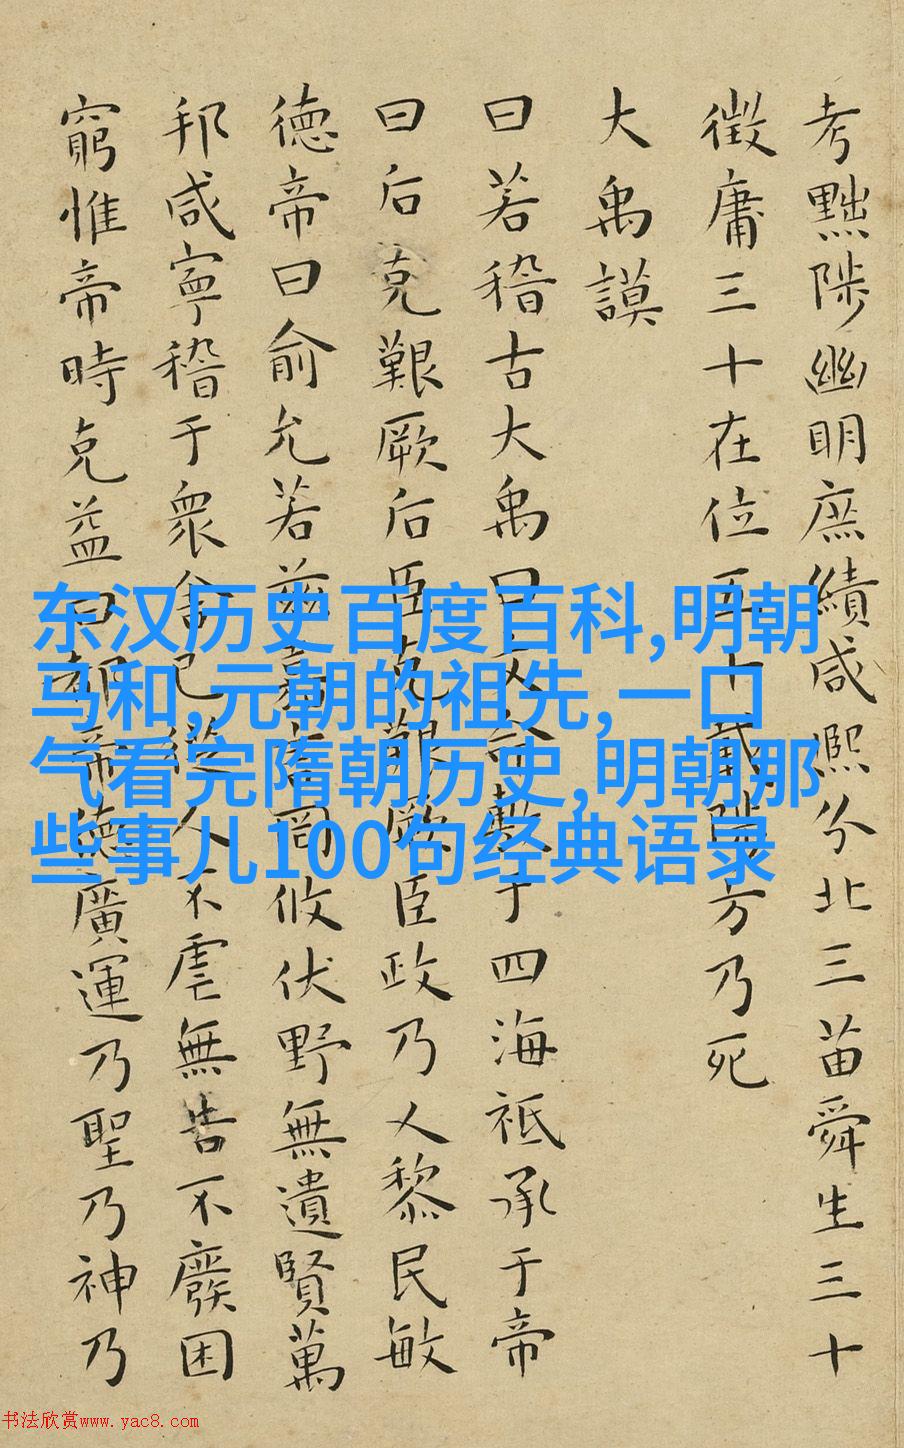 考黜陟幽明庶績咸熙分北三苗舜生三十
徵庸三十在位五十載陟方乃死
大禹謨
曰若稽古大禹曰文命敷于四海祗承于帝
曰后克艱厥后臣克艱厥臣政乃乂黎民敏
德帝曰俞允若茲嘉言罔攸伏野無遺賢萬
邦咸寧稽于衆舍己從人不虐無告不廢困
窮惟帝時克益曰都帝德廣運乃聖乃神乃
东汉历史百度百科,明朝
马和,元朝的祖先,一口
气看完隋朝历史,明朝那
些事儿100句经典语录
书法欣赏www.yac8.com